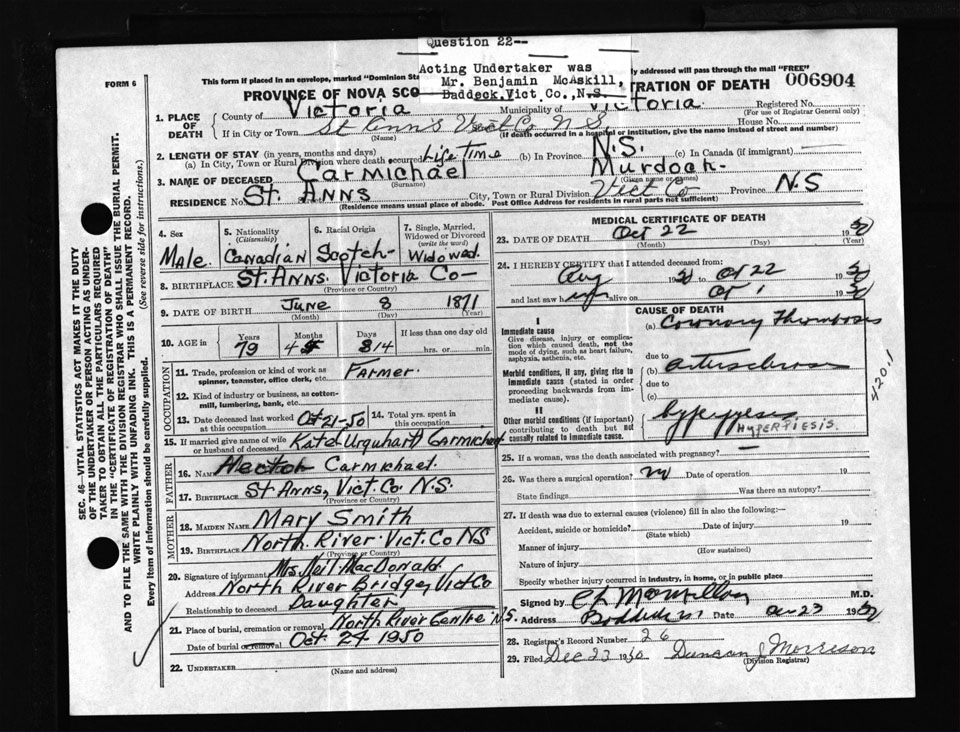 Question 22--
Acting Undertaker was
Mr. Benjamin McAskill,
Baddeck, Vict. Co., N.S.
FORM 6
This form if placed in an envelope, marked "Dominion Sta
y addressed will pass through the mail "FREE"
PROVINCE OF NOVA SCO
TRATION OF DEATH
006904
1. PLACE OF DEATH
County of Victoria
Municipality of Victoria
Registered No.
(For use of Registrar General only)
If in City or Town St Ann's Vict Co N.S.
House No.
(Name)
(If death occurred in a hospital or institution, give the name instead of street and number)
2. LENGTH OF STAY (in years, months and days)
(a) In City, Town or Rural Division where death occurred Life Time (b) In Province N.S. (c) In Canada (if immigrant)
3. NAME OF DECEASED Carmichael Murdoch
(Surname) (Given name or names)
RESIDENCE No. St. Anns City, Town or Rural Division Vict Co Province N.S
(Residence means usual place of abode. Post Office Address for residents in rural parts not sufficient)
4. Sex
Male
5. Nationality
(Citizenship)
Canadian
6. Racial Origin
Scotch
7. Single, Married, Widowed or Divorced
(write the word)
Widowed
8. BIRTHPLACE St. Anns Victoria Co
(Province or Country)
9. DATE OF BIRTH June 8 1871
(Month) (Day) (Year)
10. AGE in
Years 79
Months 4
Days 14
If less than one day old
hrs. or min.
OCCUPATION
11. Trade, profession or kind of work as spinner, teamster, office clerk, etc. Farmer.
12. Kind of industry or business, as cotton-mill, lumbering, bank, etc.
13. Date deceased last worked at this occupation Oct 21-50
14. Total yrs. spent in this occupation
15. If married give name of wife or husband of deceased Kate Urquhart Carmichael
FATHER
16. Name Hector Carmichael.
17. BIRTHPLACE St Anns, Vict. Co N.S.
(Province or Country)
MOTHER
18. MAIDEN NAME Mary Smith
19. BIRTHPLACE North River Vict. Co NS
(Province or Country)
20. Signature of informant Mrs Neil MacDonald
Address North River Bridge, Vict Co
Relationship to deceased Daughter
21. Place of burial, cremation or removal North River Centre N.S.
Date of burial or removal Oct. 24 1950
22. UNDERTAKER
(Name and address)
MEDICAL CERTIFICATE OF DEATH
23. DATE OF DEATH Oct 22 1950
(Month) (Day) (Year)
24. I HEREBY CERTIFY that I attended deceased from:
Aug to Oct 22 1950
and last saw h alive on Oct 1950
CAUSE OF DEATH
I
Immediate cause
Give disease, injury or complication which caused death, not the mode of dying, such as heart failure, asphyxia, asthenia, etc.
(a) Coronary Thrombosis
due to
Morbid conditions, if any, giving rise to immediate cause (stated in order proceeding backwards from immediate cause).
(b) arteriosclerosis
due to
(c)
II
Other morbid conditions (if important) contributing to death but not causally related to immediate cause.
hyperpiesis
HYPERPIESIS.
4201
25. If a woman, was the death associated with pregnancy?
26. Was there a surgical operation? no Date of operation 19
State findings Was there an autopsy?
27. If death was due to external causes (violence) fill in also the following:—
Accident, suicide or homicide? Date of injury 19
(State which)
Manner of injury
(How sustained)
Nature of injury
Specify whether injury occurred in industry, in home, or in public place
Signed by M.D.
Address Baddeck Date Oct 23 1950
28. Registrar's Record Number 26
29. Filed Dec 23 1950 Duncan J Morrison
(Division Registrar)
SEC. 46—VITAL STATISTICS ACT MAKES IT THE DUTY
OF THE UNDERTAKER OR PERSON ACTING AS UNDERTAKER TO OBTAIN ALL THE PARTICULARS REQUIRED
IN THE "CERTIFICATE OF REGISTRATION OF DEATH"
AND TO FILE THE SAME WITH THE DIVISION REGISTRAR WHO SHALL ISSUE THE BURIAL PERMIT.
WRITE PLAINLY WITH UNFADING INK. THIS IS A PERMANENT RECORD.
Every item of information should be carefully supplied. (See reverse side for instructions.)